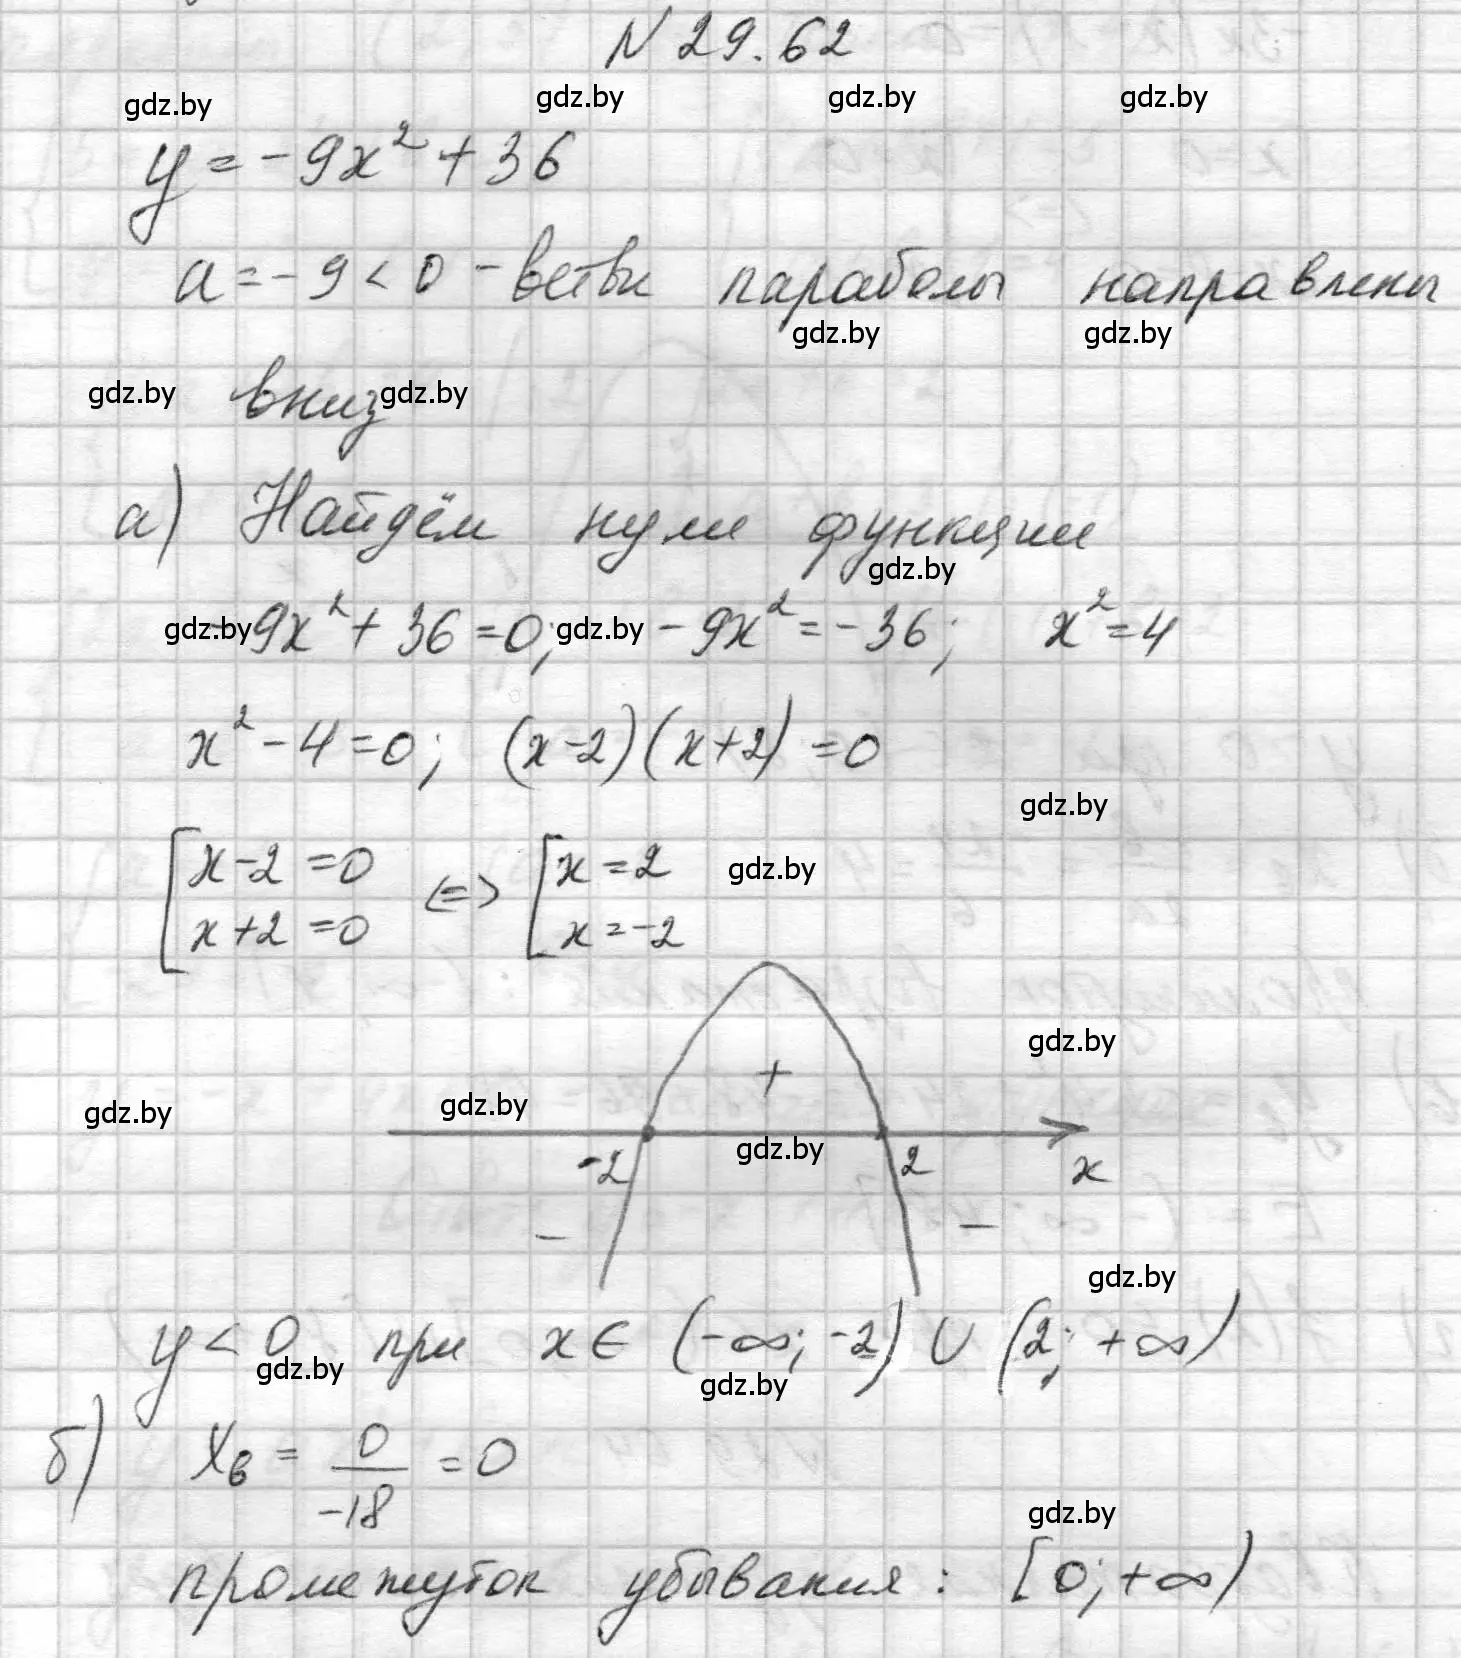 N 29.62
gdz.by gdz.by gdz.by gdz.by
y = -9x² + 36
a = -9 < 0 - ветви параболы направлены
gdz.by gdz.by
gdz.by вниз gdz.by
а) Найдём нули функции
gdz.by
-9x² + 36 = 0; -9x² = -36; x² = 4
gdz.by gdz.by
x² - 4 = 0; (x-2)(x+2) = 0
gdz.by
[x-2 = 0 <=> [x = 2 gdz.by
x+2 = 0 x = -2
gdz.by
+
gdz.by gdz.by gdz.by
-2 2 x
- -
gdz.by
y < 0 при x ∈ (-∞; -2) ∪ (2; +∞)
gdz.by gdz.by
б) xв = 0/-18 = 0
gdz.by
промежуток убывания: [0; +∞)